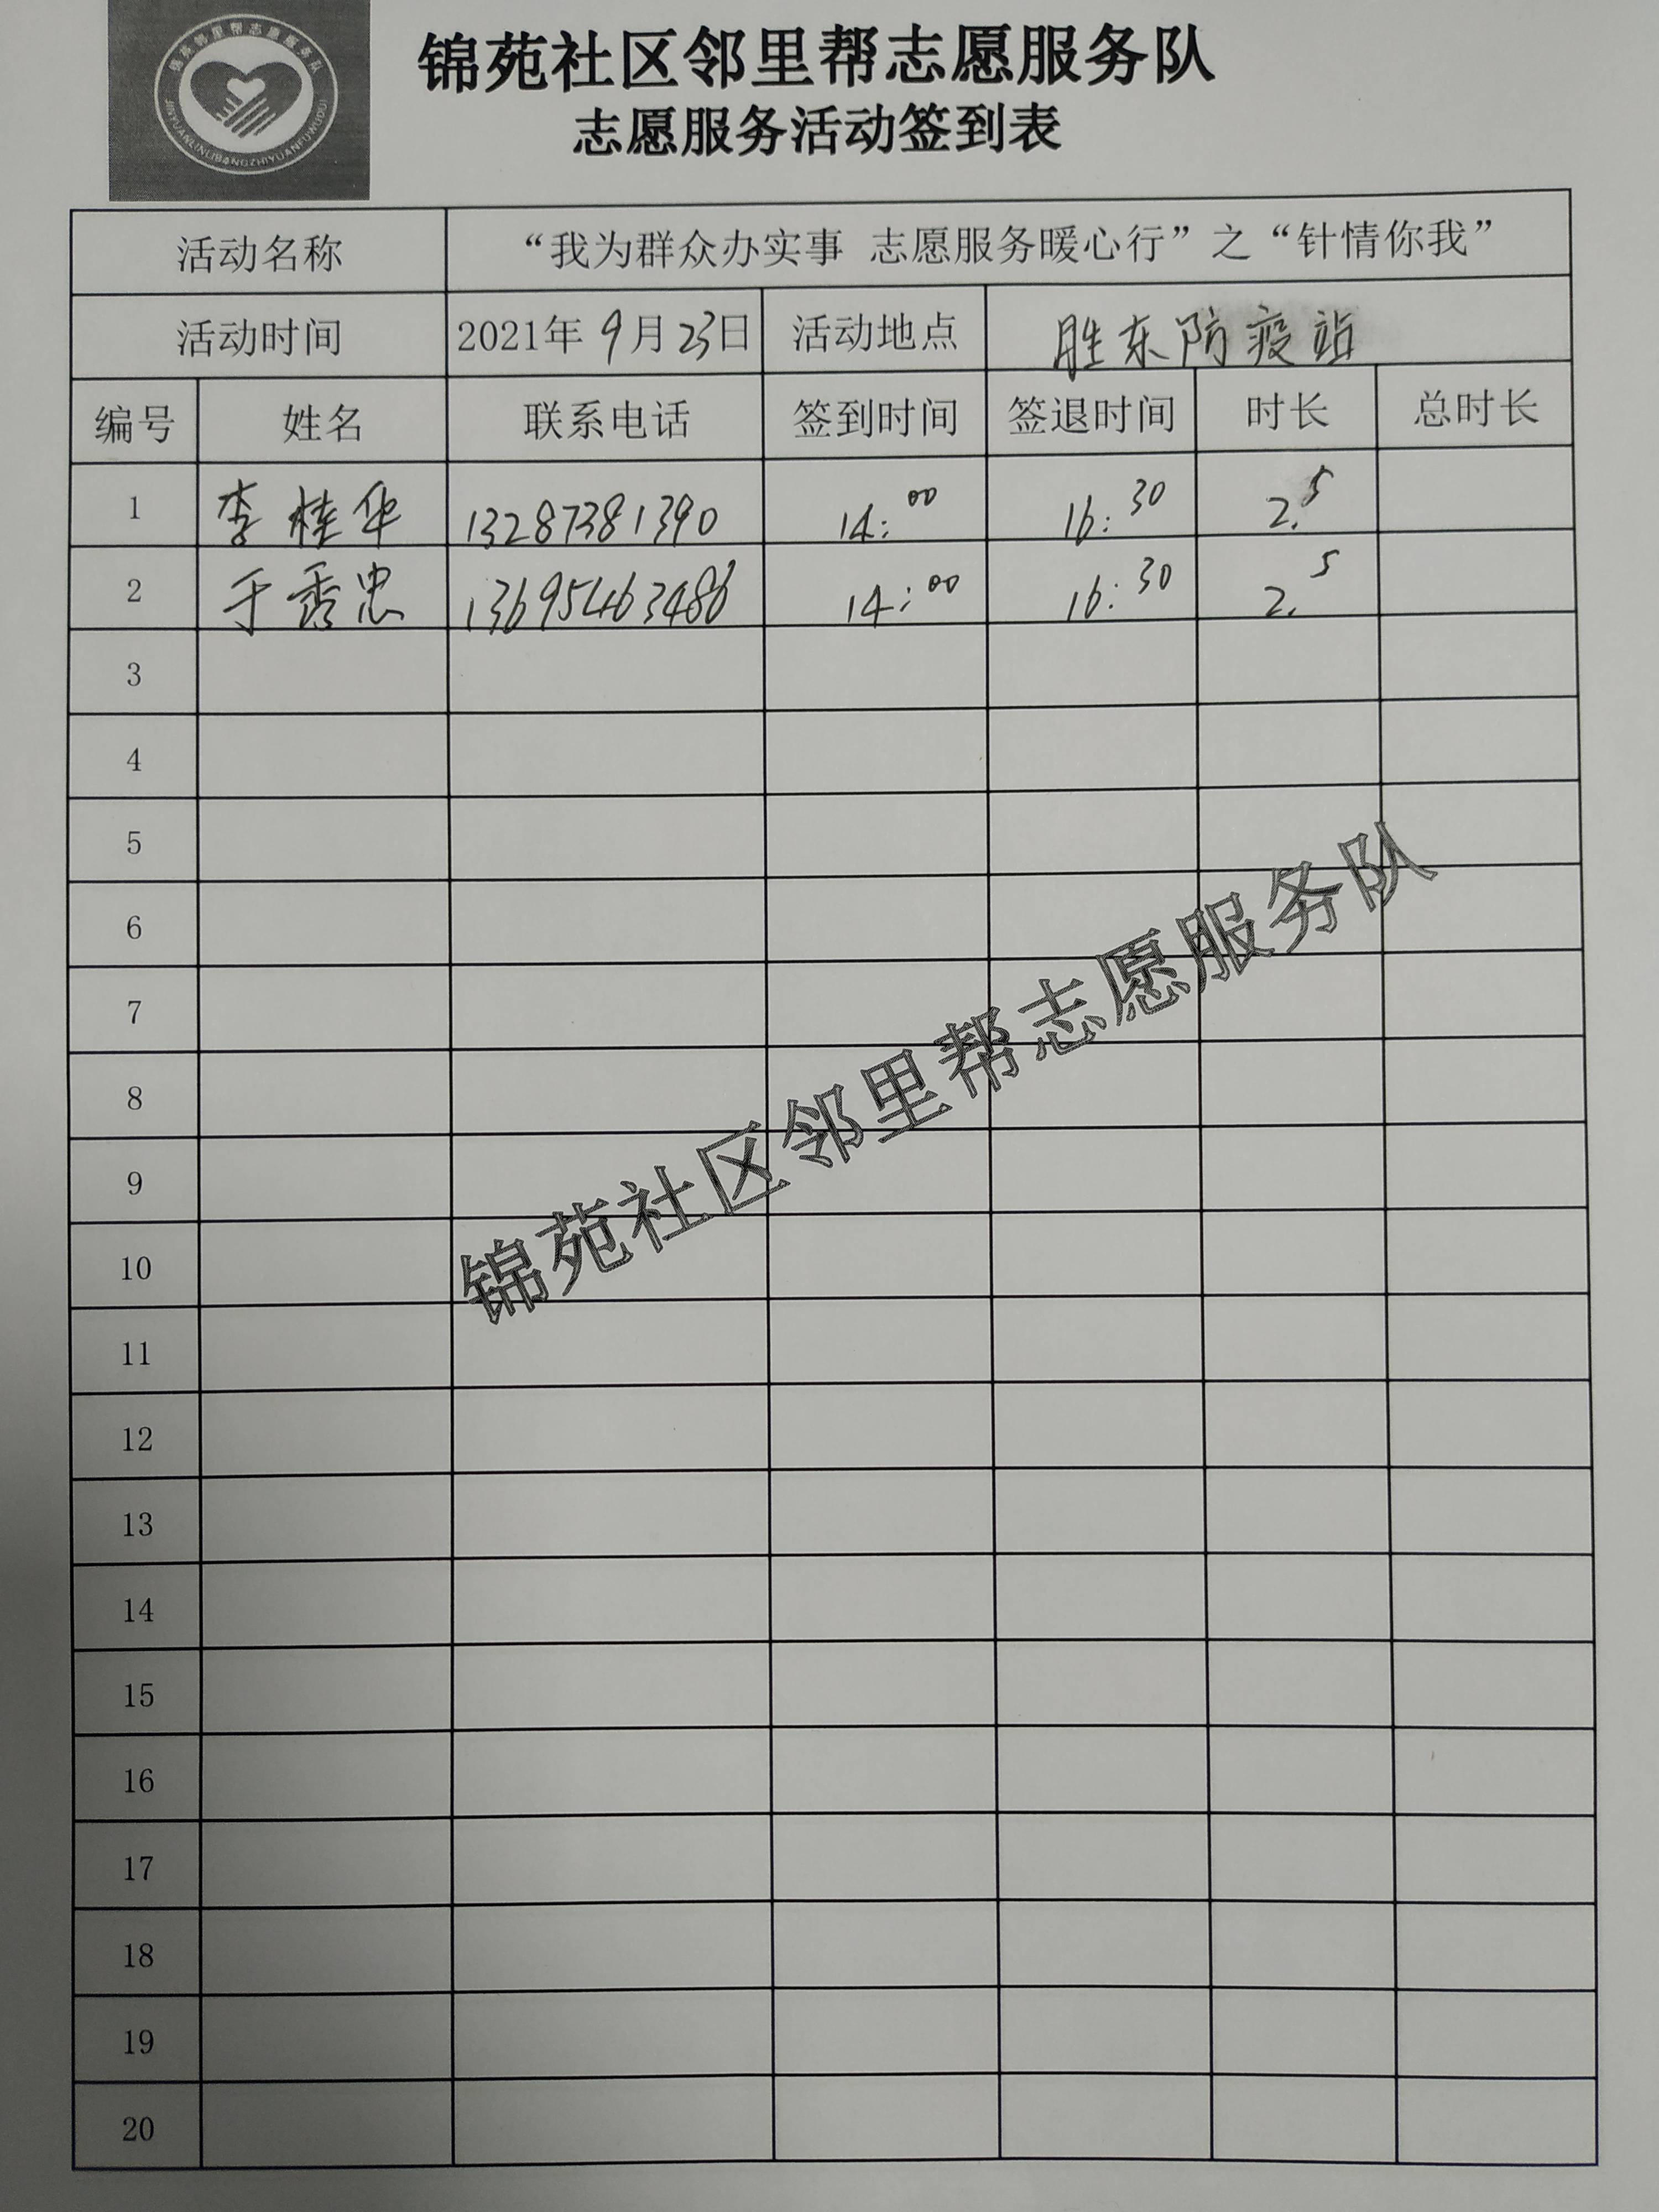 锦苑邻里帮志愿服务队
JINYUANLINLIBANGZHIYUANFUWUDUI
锦苑社区邻里帮志愿服务队
志愿服务活动签到表
活动名称 “我为群众办实事 志愿服务暖心行”之“针情你我”
活动时间 2021年 9月 23日 活动地点 胜东防疫站
编号 姓名 联系电话 签到时间 签退时间 时长 总时长
1 李桂华 13287381390 14:00 16:30 2.5
2 于秀忠 13695463486 14:00 16:30 2.5
3
4
5
6
7
8
9
10
11
12
13
14
15
16
17
18
19
20
锦苑社区邻里帮志愿服务队